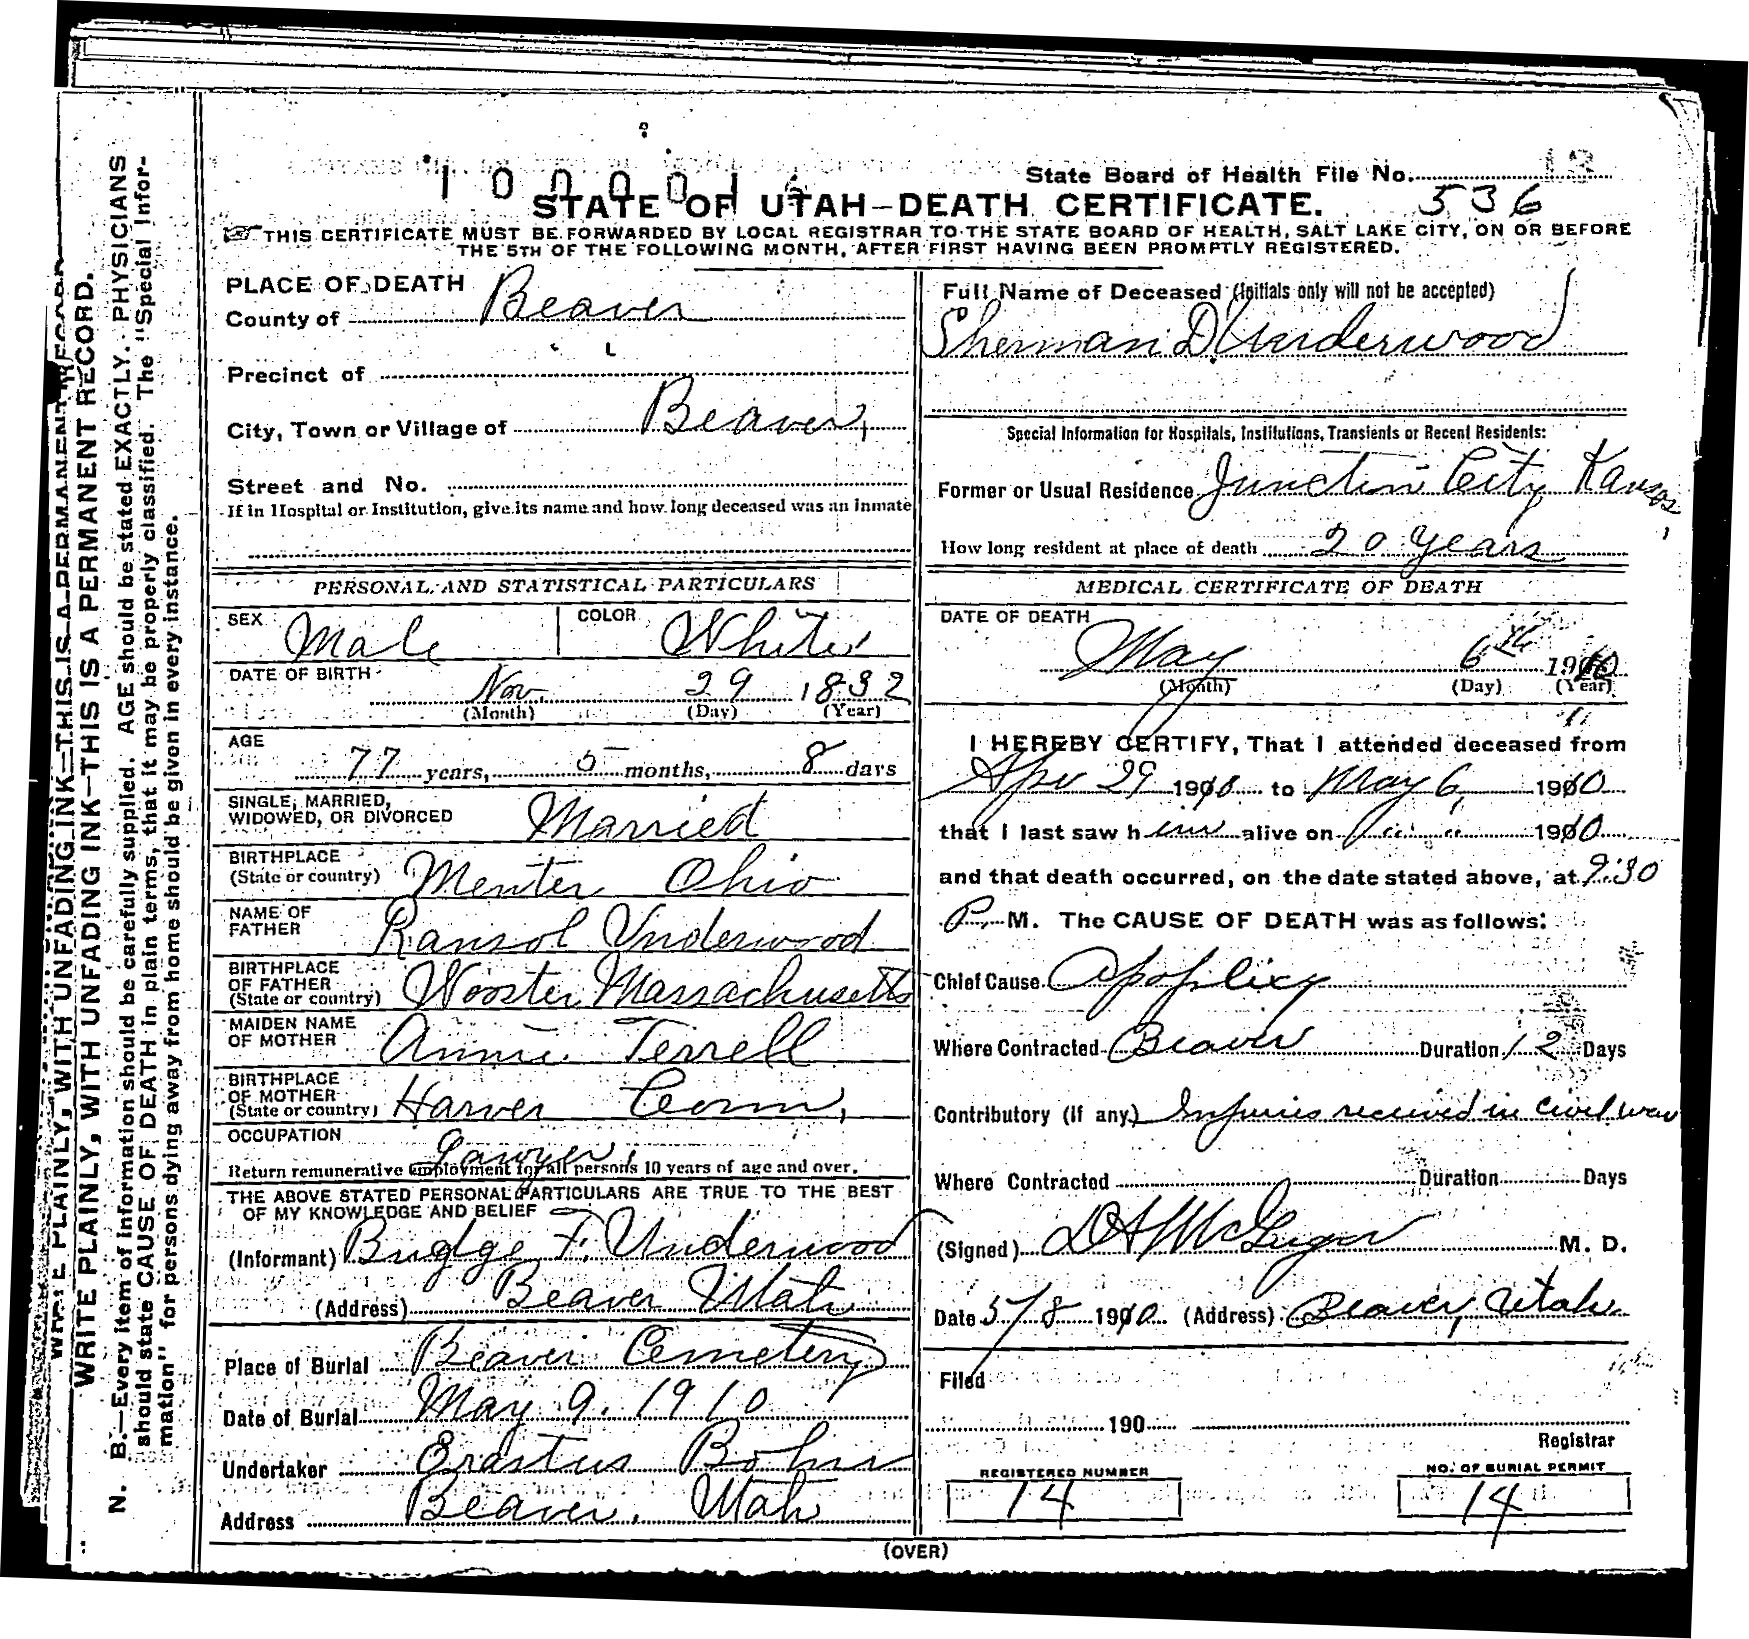 State Board of Health File No.
STATE OF UTAH—DEATH CERTIFICATE. 536
THIS CERTIFICATE MUST BE FORWARDED BY LOCAL REGISTRAR TO THE STATE BOARD OF HEALTH, SALT LAKE CITY, ON OR BEFORE
THE 5TH OF THE FOLLOWING MONTH, AFTER FIRST HAVING BEEN PROMPTLY REGISTERED.
PLACE OF DEATH
County of Beaver
Precinct of
City, Town or Village of Beaver,
Street and No.
If in Hospital or Institution, give its name and how long deceased was an inmate
PERSONAL AND STATISTICAL PARTICULARS
SEX Male COLOR White
DATE OF BIRTH
Nov. 29 1832
(Month) (Day) (Year)
AGE
77 years, 5 months, 8 days
SINGLE, MARRIED,
WIDOWED, OR DIVORCED Married
BIRTHPLACE
(State or country) Menter Ohio
NAME OF
FATHER Ransol Underwood
BIRTHPLACE
OF FATHER
(State or country) Wooster, Massachusetts
MAIDEN NAME
OF MOTHER Annie Terrell
BIRTHPLACE
OF MOTHER
(State or country) Harver Conn,
OCCUPATION
Lawyer,
Return remunerative employment for all persons 10 years of age and over.
THE ABOVE STATED PERSONAL PARTICULARS ARE TRUE TO THE BEST
OF MY KNOWLEDGE AND BELIEF
(Informant) F. Underwood
(Address) Beaver Utah
Place of Burial Beaver Cemetery
Date of Burial May 9. 1910
Undertaker Erastus Bohn
Address Beaver, Utah
Full Name of Deceased (Initials only will not be accepted)
Sherman D. Underwood
Special Information for Hospitals, Institutions, Transients or Recent Residents:
Former or Usual Residence Junction City Kansas,
How long resident at place of death 20 years
MEDICAL CERTIFICATE OF DEATH
DATE OF DEATH
May 6th 1910
(Month) (Day) (Year)
I HEREBY CERTIFY, That I attended deceased from
Apr 29 1910 to May 6, 1910
that I last saw him alive on " " 1910
and that death occurred, on the date stated above, at 9:30
P. M. The CAUSE OF DEATH was as follows:
Chief Cause Apoplixy
Where Contracted Beaver Duration 12 Days
Contributory (if any) Injuries received in civil war
Where Contracted Duration Days
(Signed) M. D.
Date 5/8 1910 (Address) Beaver, Utah
Filed
190
Registrar
REGISTERED NUMBER
14
NO. OF BURIAL PERMIT
14
(OVER)
WRITE PLAINLY, WITH UNFADING INK—THIS IS A PERMANENT RECORD.
WRITE PLAINLY, WITH UNFADING INK—THIS IS A PERMANENT RECORD.
N. B.—Every item of information should be carefully supplied. AGE should be stated EXACTLY. PHYSICIANS
should state CAUSE OF DEATH in plain terms, that it may be properly classified. The "Special Infor-
mation" for persons dying away from home should be given in every instance.